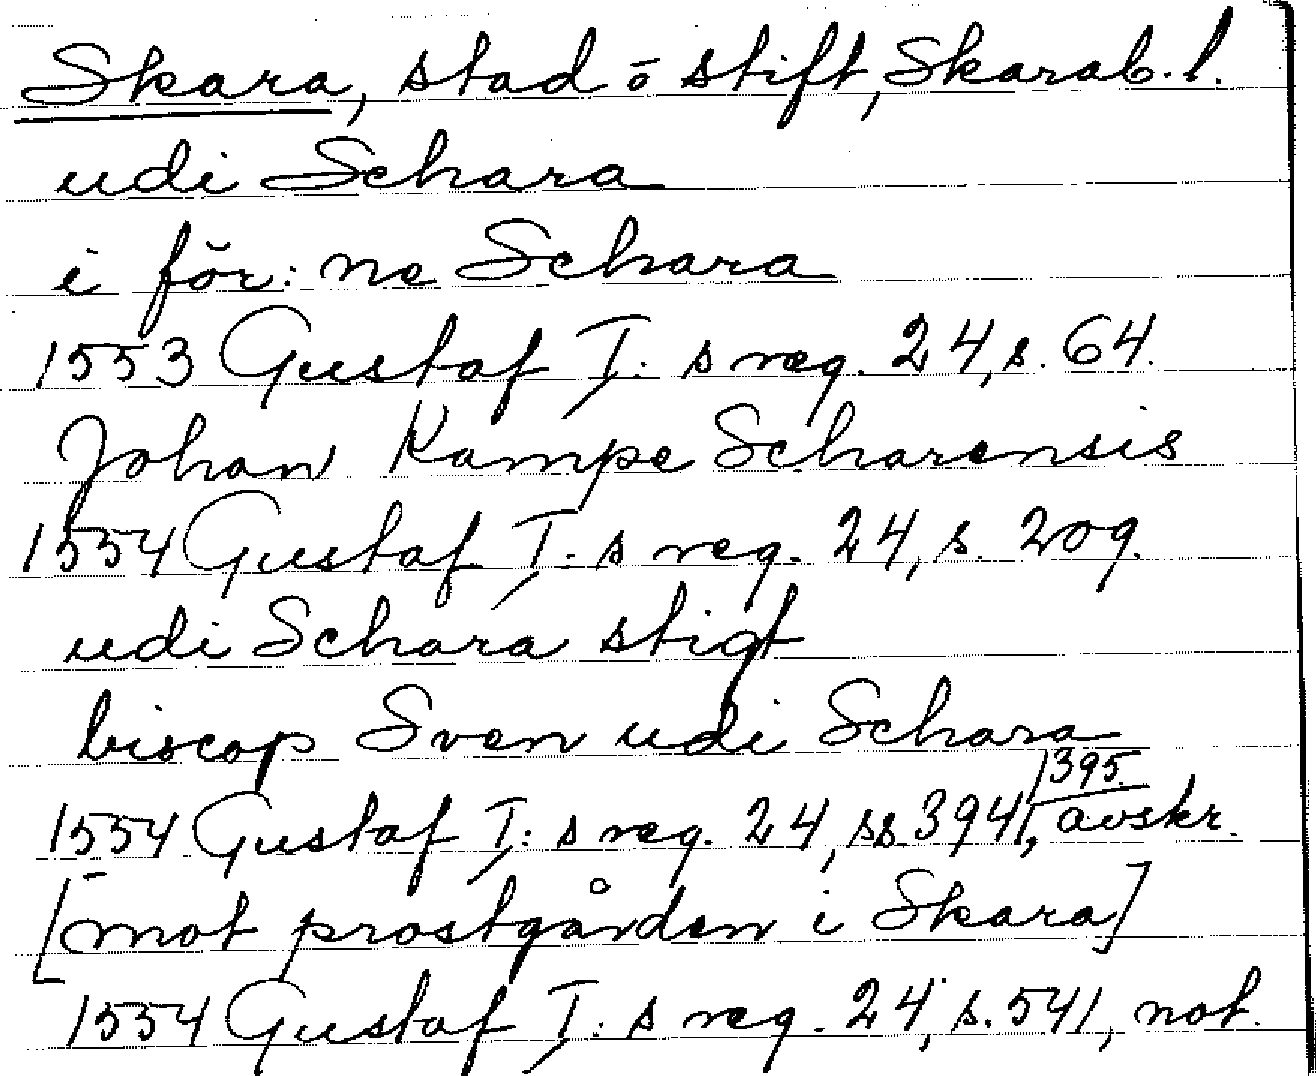 Skara, stad o stift, Skarab. l.
udi Schara
i för: ne Schara
1553 Gustaf I: s reg. 24, s. 64.
Johan Kampe Scharensis
1554 Gustaf I: s reg. 24, s. 209.
udi Schara stigt
biscop Sven udi Schara
1554 Gustaf I: s reg. 24, ss. 394, 395. avskr.
[mot prostgården i Skara]
1554 Gustaf I: s reg. 24, s. 541, not.